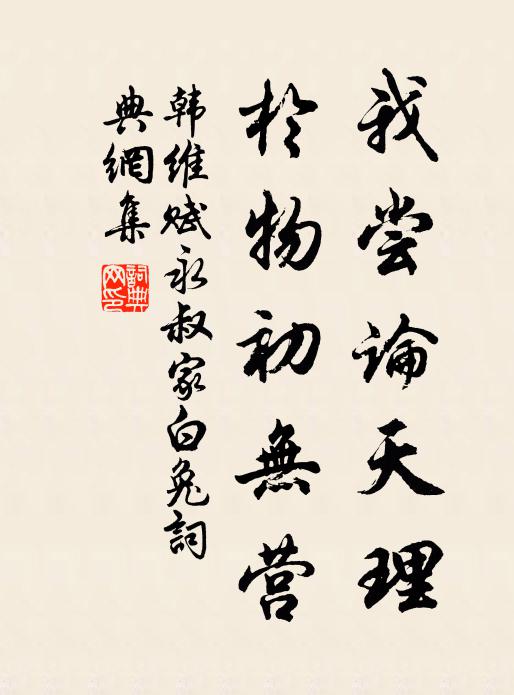 我尝論天理
於物初無营
韩維赋永叔家白兔詞
典網集
詞典网印